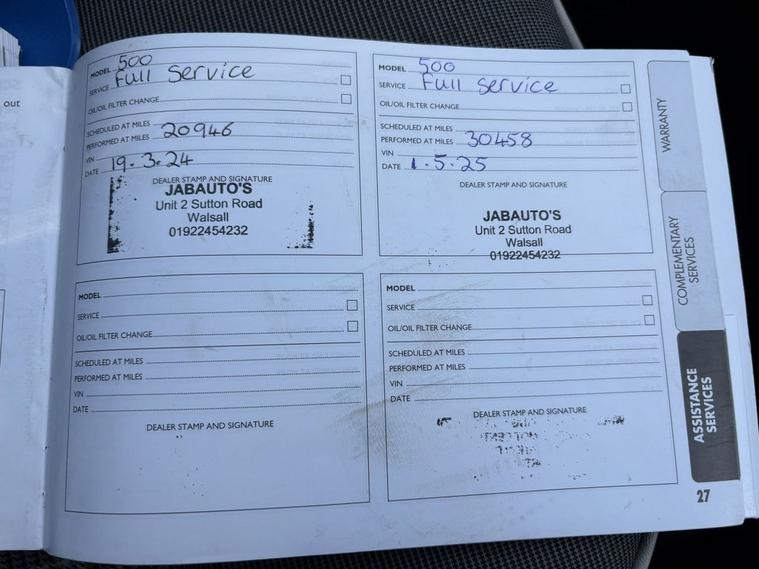 out
MODEL 500
SERVICE Full Service
OIL/OIL FILTER CHANGE
SCHEDULED AT MILES
PERFORMED AT MILES 20946
VIN
DATE 19.3.24
DEALER STAMP AND SIGNATURE
JABAUTO'S
Unit 2 Sutton Road
Walsall
01922454232
MODEL 500
SERVICE Full Service
OIL/OIL FILTER CHANGE
SCHEDULED AT MILES
PERFORMED AT MILES 30458
VIN
DATE 1.5.25
DEALER STAMP AND SIGNATURE
JABAUTO'S
Unit 2 Sutton Road
Walsall
01922454232
MODEL
SERVICE
OIL/OIL FILTER CHANGE
SCHEDULED AT MILES
PERFORMED AT MILES
VIN
DATE
DEALER STAMP AND SIGNATURE
MODEL
SERVICE
OIL/OIL FILTER CHANGE
SCHEDULED AT MILES
PERFORMED AT MILES
VIN
DATE
DEALER STAMP AND SIGNATURE
WARRANTY
COMPLEMENTARY
SERVICES
ASSISTANCE
SERVICES
27